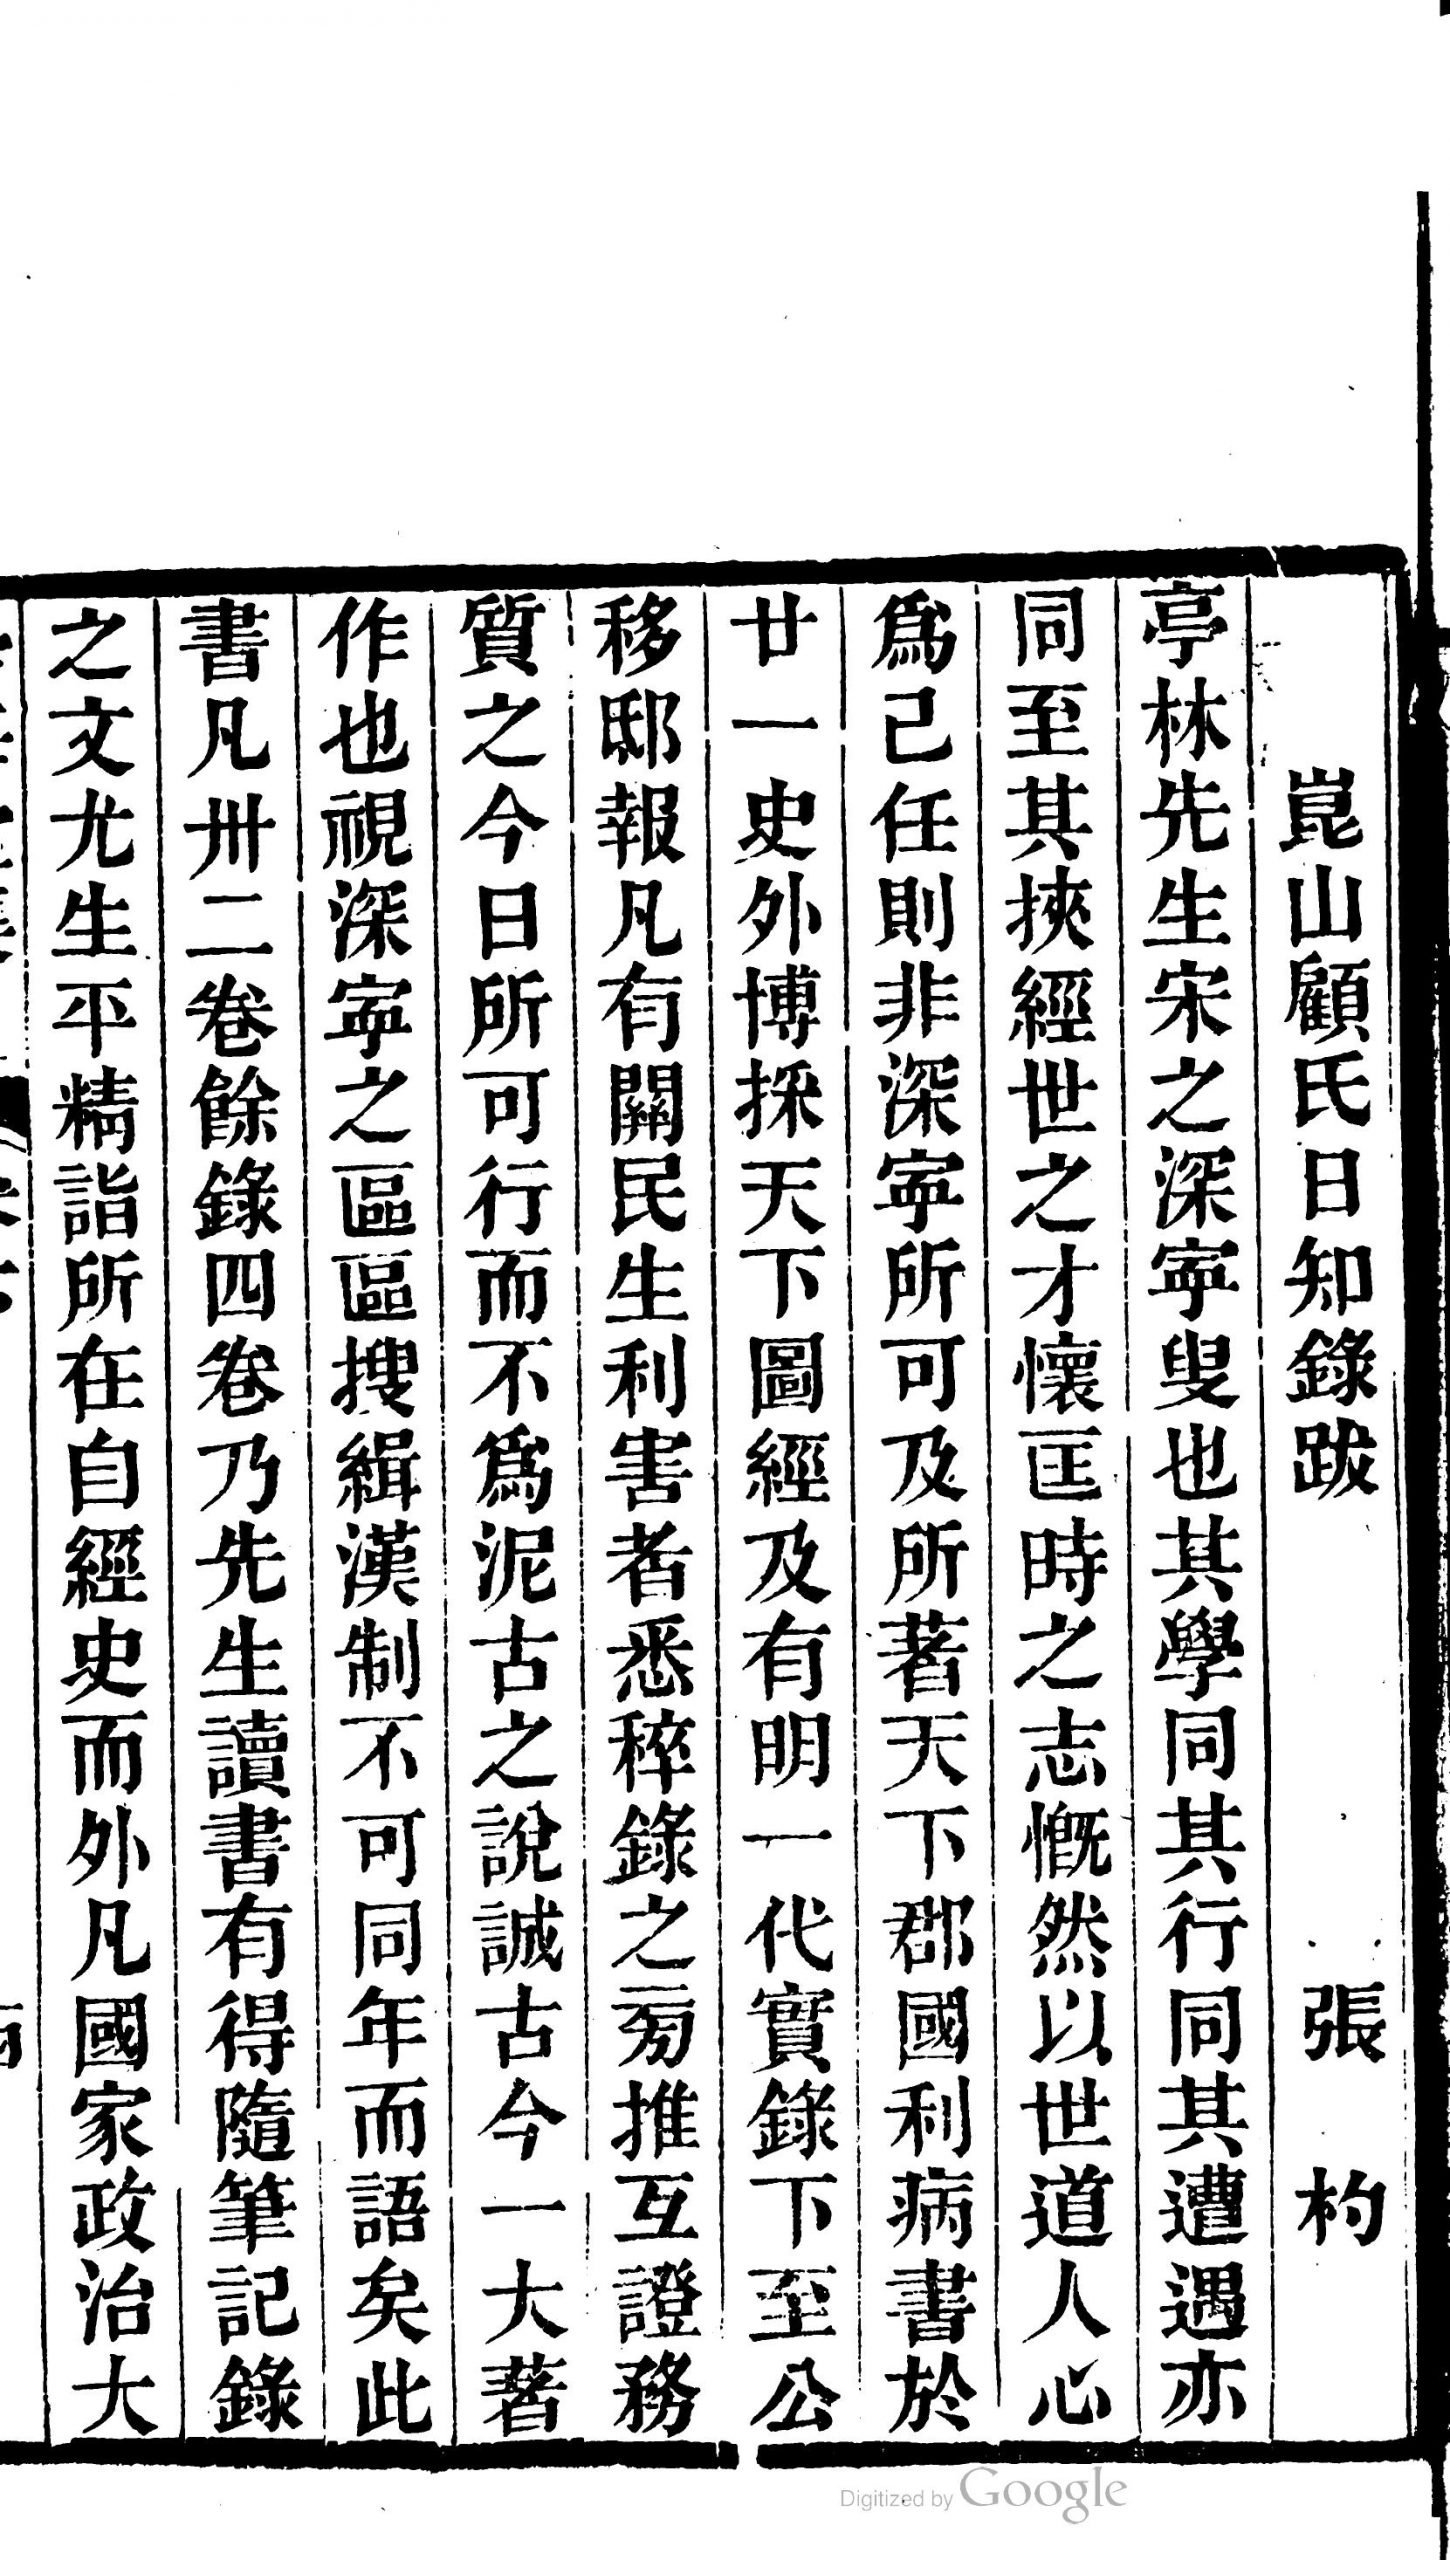 崑山顧氏日知錄跋　張杓
亭林先生宋之深寧叟也其學同其行同其遭遇亦
同至其挾經世之才懷匡時之志慨然以世道人心
爲己任則非深寧所可及所著天下郡國利病書於
廿一史外博採天下圖經及有明一代實錄下至公
移邸報凡有關民生利害者悉稡錄之旁推互證務
質之今日所可行而不爲泥古之說誠古今一大著
作也視深寧之區區搜緝漢制不可同年而語矣此
書凡卅二卷餘錄四卷乃先生讀書有得隨筆記錄
之文尤生平精詣所在自經史而外凡國家政治大
Digitized by Google